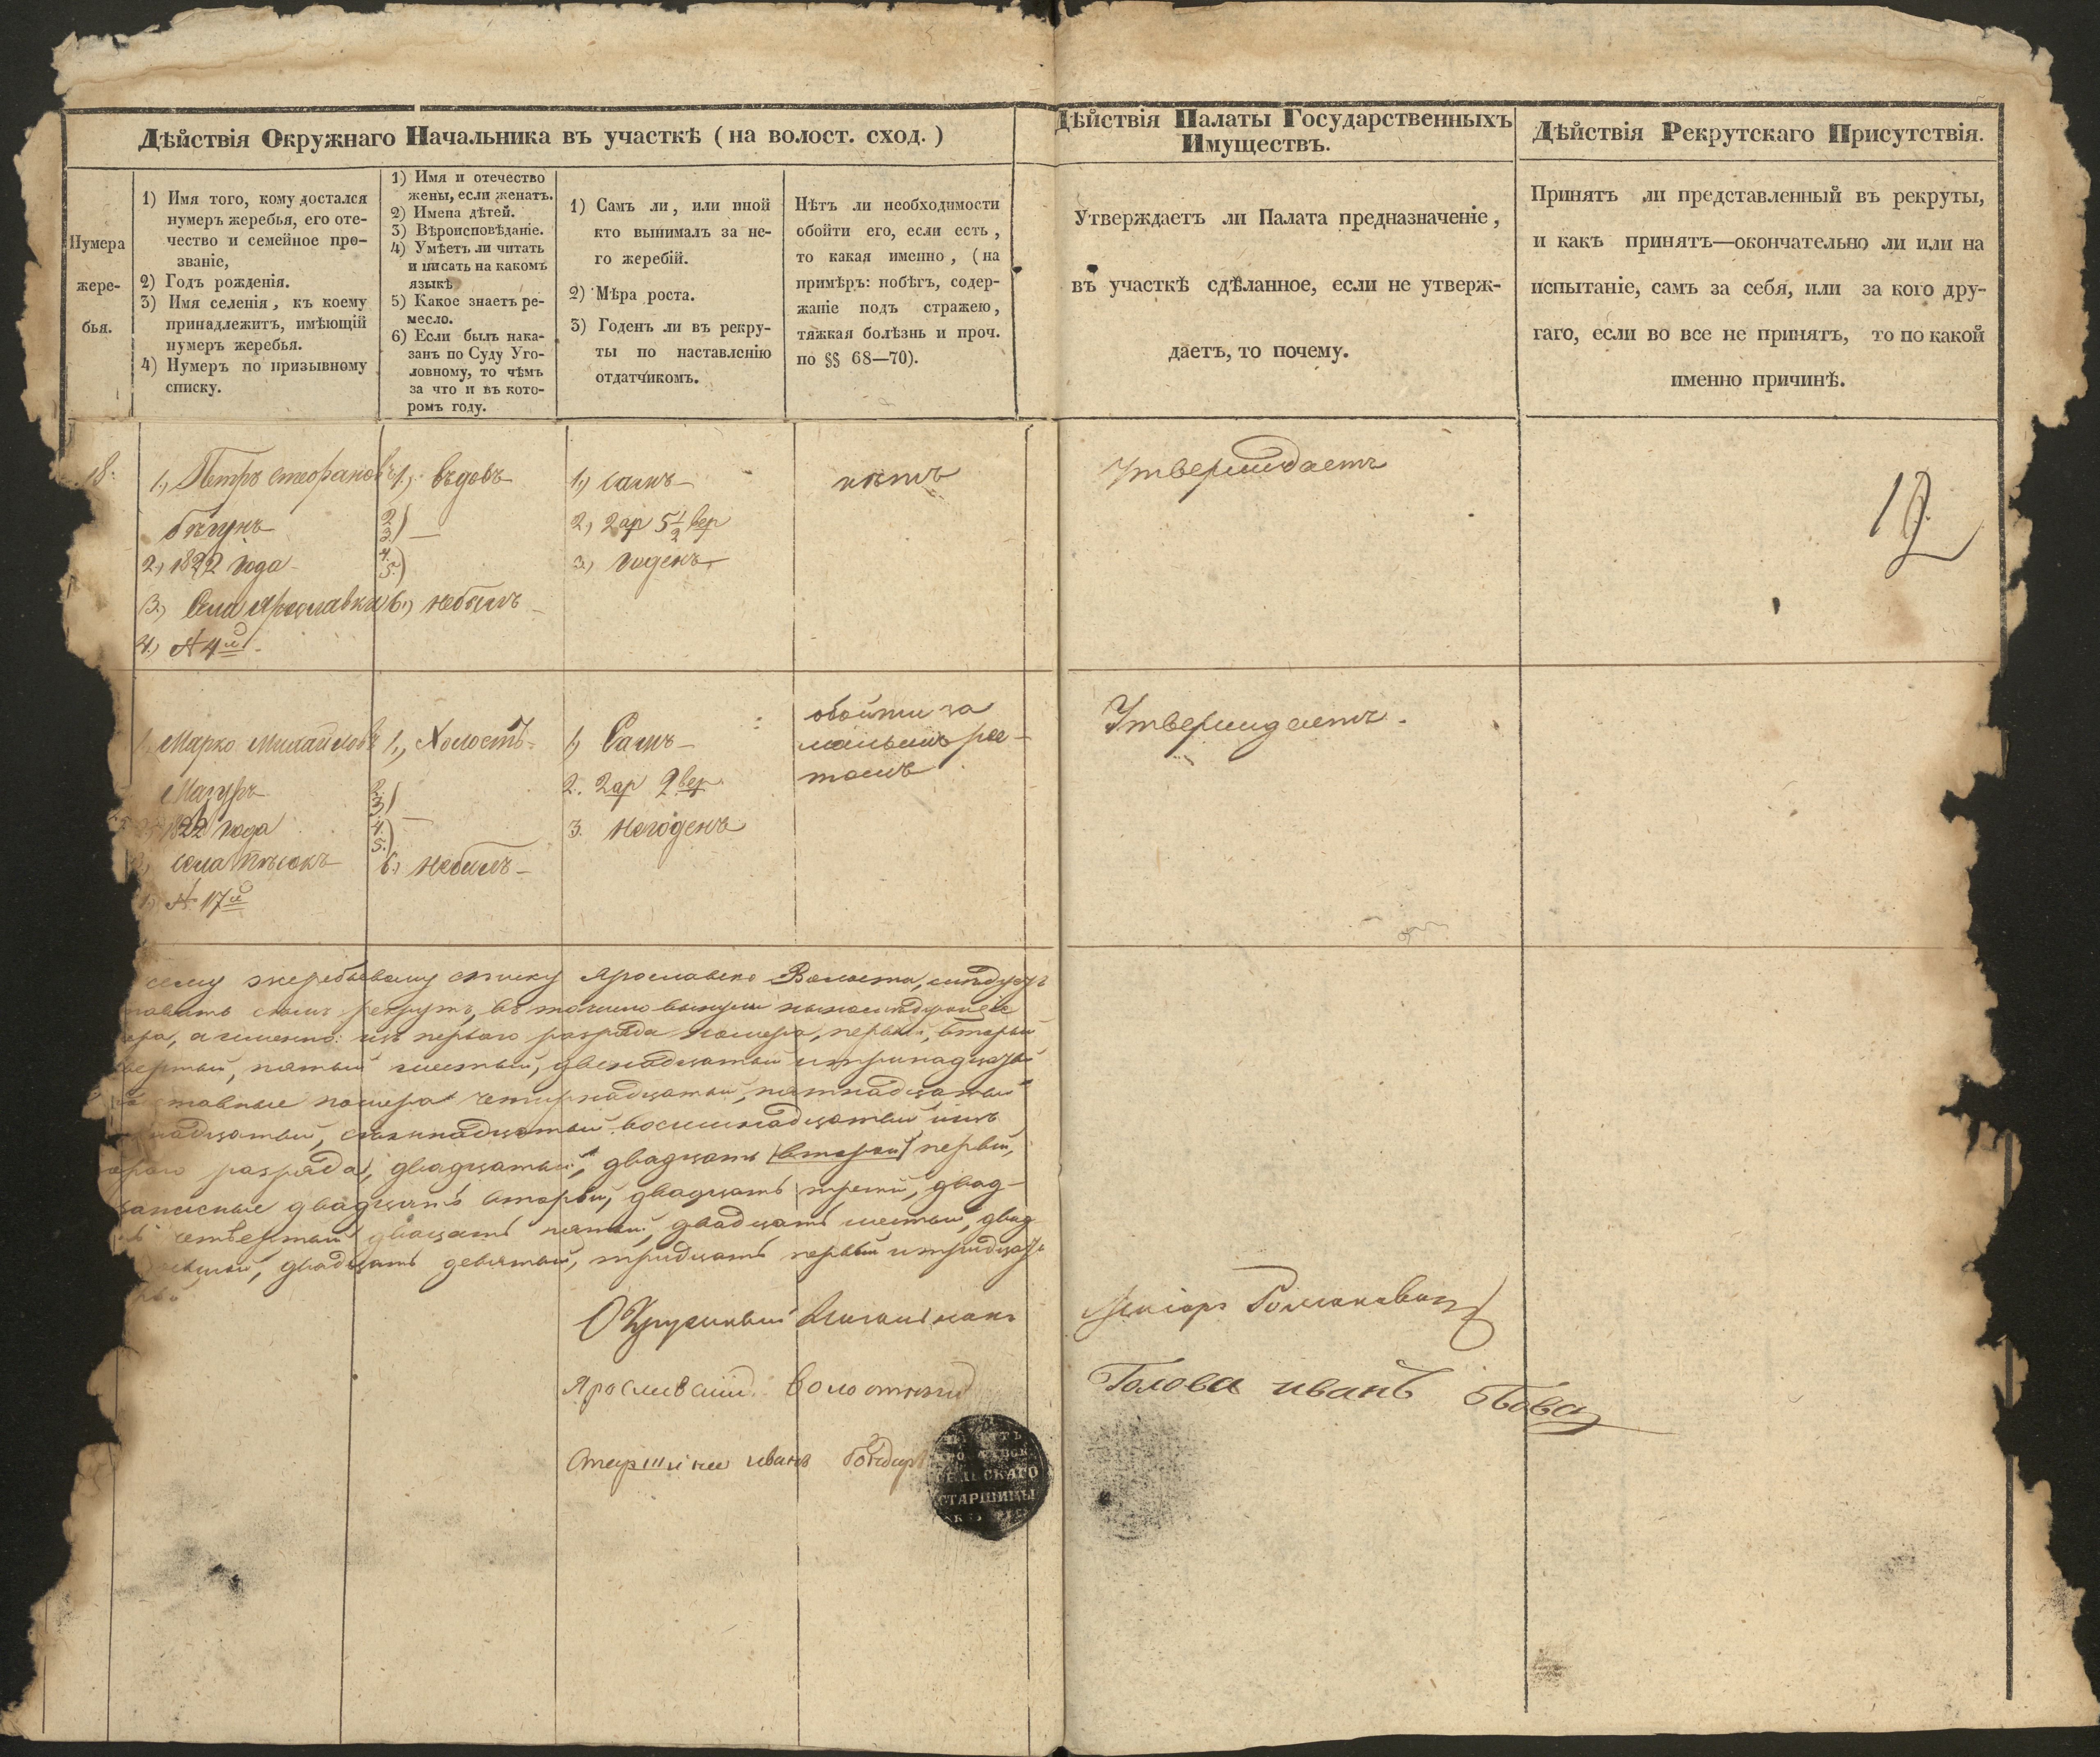 Дѣйствія Окружнаго Начальника въ участкѣ (на волост. сход.)
Дѣйствія Палаты Государственныхъ
Имуществъ.
Дѣйствія Рекрутскаго Присутствія.
Нумера
жере-
бья.
1) Имя того, кому достался
нумеръ жеребья, его оте-
чество и семейное про-
званіе,
2) Годъ рожденія.
3) Имя селенія, къ коему
принадлежитъ, имѣющій
нумеръ жеребья.
4) Нумеръ по призывному
списку.
1) Имя и отечество
жены, если женатъ.
2) Имена дѣтей.
3) Вѣроисповѣданіе.
4) Умѣетъ ли читать
и писать на какомъ
языкѣ
5) Какое знаетъ ре-
месло.
6) Если былъ нака-
занъ по Суду Уго-
ловному, то чѣмъ
за что и въ кото-
ромъ году.
1) Самъ ли, или иной
кто вынималъ за не-
го жеребій.
2) Мѣра роста.
3) Годенъ ли въ рекру-
ты по наставленію
отдатчикомъ.
Нѣтъ ли необходимости
обойти его, если есть,
то какая именно, (на
примѣръ: побѣгъ, содер-
жаніе подъ стражею,
тяжкая болѣзнь и проч.
по §§ 68—70).
Утверждаетъ ли Палата предназначеніе,
въ участкѣ сдѣланное, если не утверж-
даетъ, то почему.
Принятъ ли представленный въ рекруты,
и какъ принятъ—окончательно ли или на
испытаніе, самъ за себя, или за кого дру-
гаго, если во все не принятъ, то по какой
именно причинѣ.
18.
1., Петръ Стефановъ
бѣгунъ
2., 1822 года
3., Села Ярославки
4., № 4й
1., вѣдовъ
2
3) —
4.
5.)
6., небылъ
1., самъ
2., 2 ар 5 1/2 вер
3., годенъ
нѣтъ
Утверждаетъ
1., Марко Михайловъ
Мазуръ
1822 года
села Пѣсокъ
№ 17й
1., Холостъ
2.
3) —
4.
5.)
6., небылъ
1, Самъ
2. 2 ар 2 вер
3. негоденъ
обойти за
малымъ рос-
томъ
Утверждаетъ.
сему жеребьевому списку Ярославской Волости, слѣдуетъ
рекрутъ, въ
а именно: изъ перваго разряда номера, первый, вторый
пятый шестый, двенадцатый и тринадцатый
номера четырнадцатый, пятнадцатый
восемнадцатый изъ
разряда, двадцатый, двадцать второй первый,
запасные двадцать вторый, двадцать третій, двад-
четвертый двадцать пятый, двадцать шестый, двад
двадцать девятый, тридцать первый и тридцать
Окружный Начальникъ
Маіоръ Романовичъ
Волостный
Голова иванъ
Старшина иванъ Бондарь
СЕЛЬСКАГО
СТАРШИНЫ